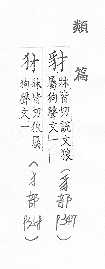 類篇
豺 牀皆切說文狼
屬狗聲文一
(豸部
犲 牀皆切狼屬
狗聲文一